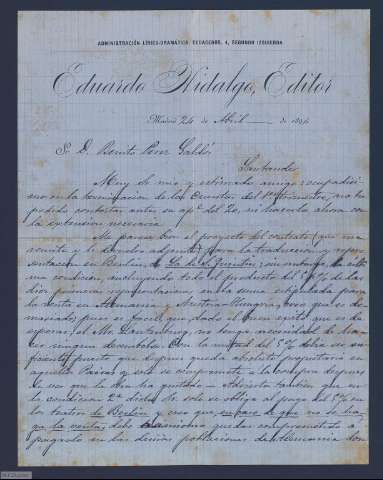 ADMINISTRACIÓN LÍRICO-DRAMÁTICA, CEDACEROS, 4, SEGUNDO IZQUIERDA
Eduardo Hidalgo, Editor
Madrid 24 de Abril de 1894
Sr. D. Benito Perez Galdós
Santander
Muy Sr. mio y estimado amigo: ocupadisi-
mo en la terminacion de las Cuentas del 1er trimestre, no he
podido contestar antes su apble. del 20, ni hacerlo ahora con
la extension necesaria
Me parece bien el proyecto del contrato (que me
remite y le devuelvo adjunto) para la traduccion y repre-
sentacion en Berlin, de La de S. Quintin;
ma condicion, incluyendo todo el producto del 5% de las
diez primeras representaciones en la suma estipulada para
la venta en Alemania y Austria-Hungria, creo que es de-
masiado; pues es facil que dado el buen exito que es de
esperar, el Mr. no tenga necesidad de ha-
cer ningun desembolso. Con la mitad del 5% debia ser su-
ficiente, puesto que despues queda absoluto propietario en
aquellos Paises y solo se compromete a la compra despues
de ver que la obra ha gustado - Advierto tambien que en
la condicion 2ª dicho Mr. solo se obliga al pago del 5% en
los teatros de Berlin y creo que, en caso de que no se ha-
ga la venta, debe tambien quedar comprometido a
pagarlo en las demás poblaciones de Alemania don-